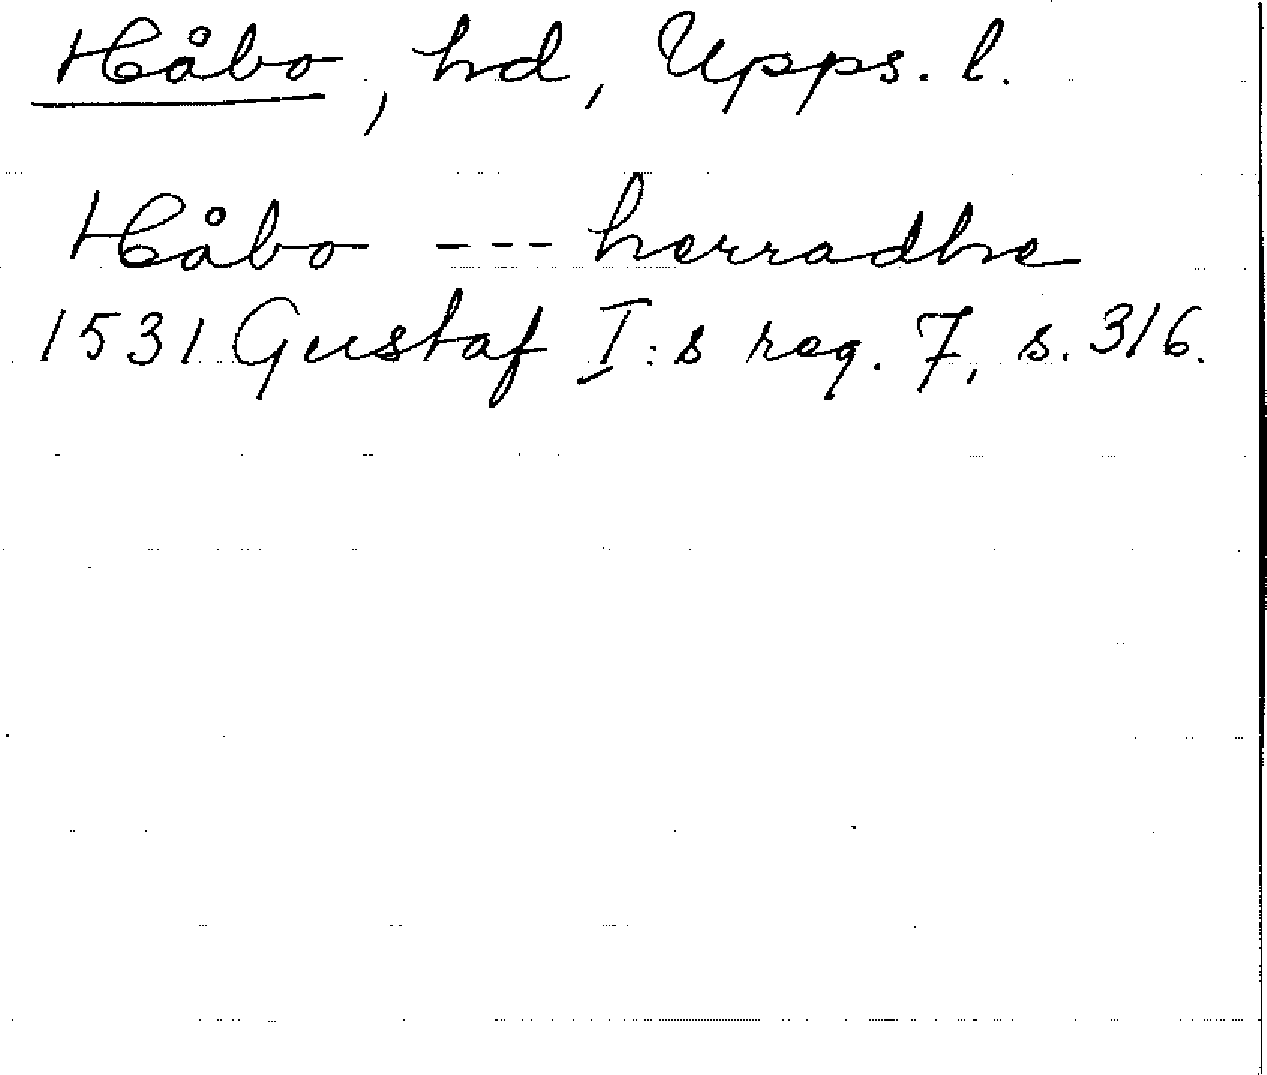 Håbo, hd, Upps. l.
Håbo --- herradhe
1531 Gustaf I:s reg. 7, s. 316.